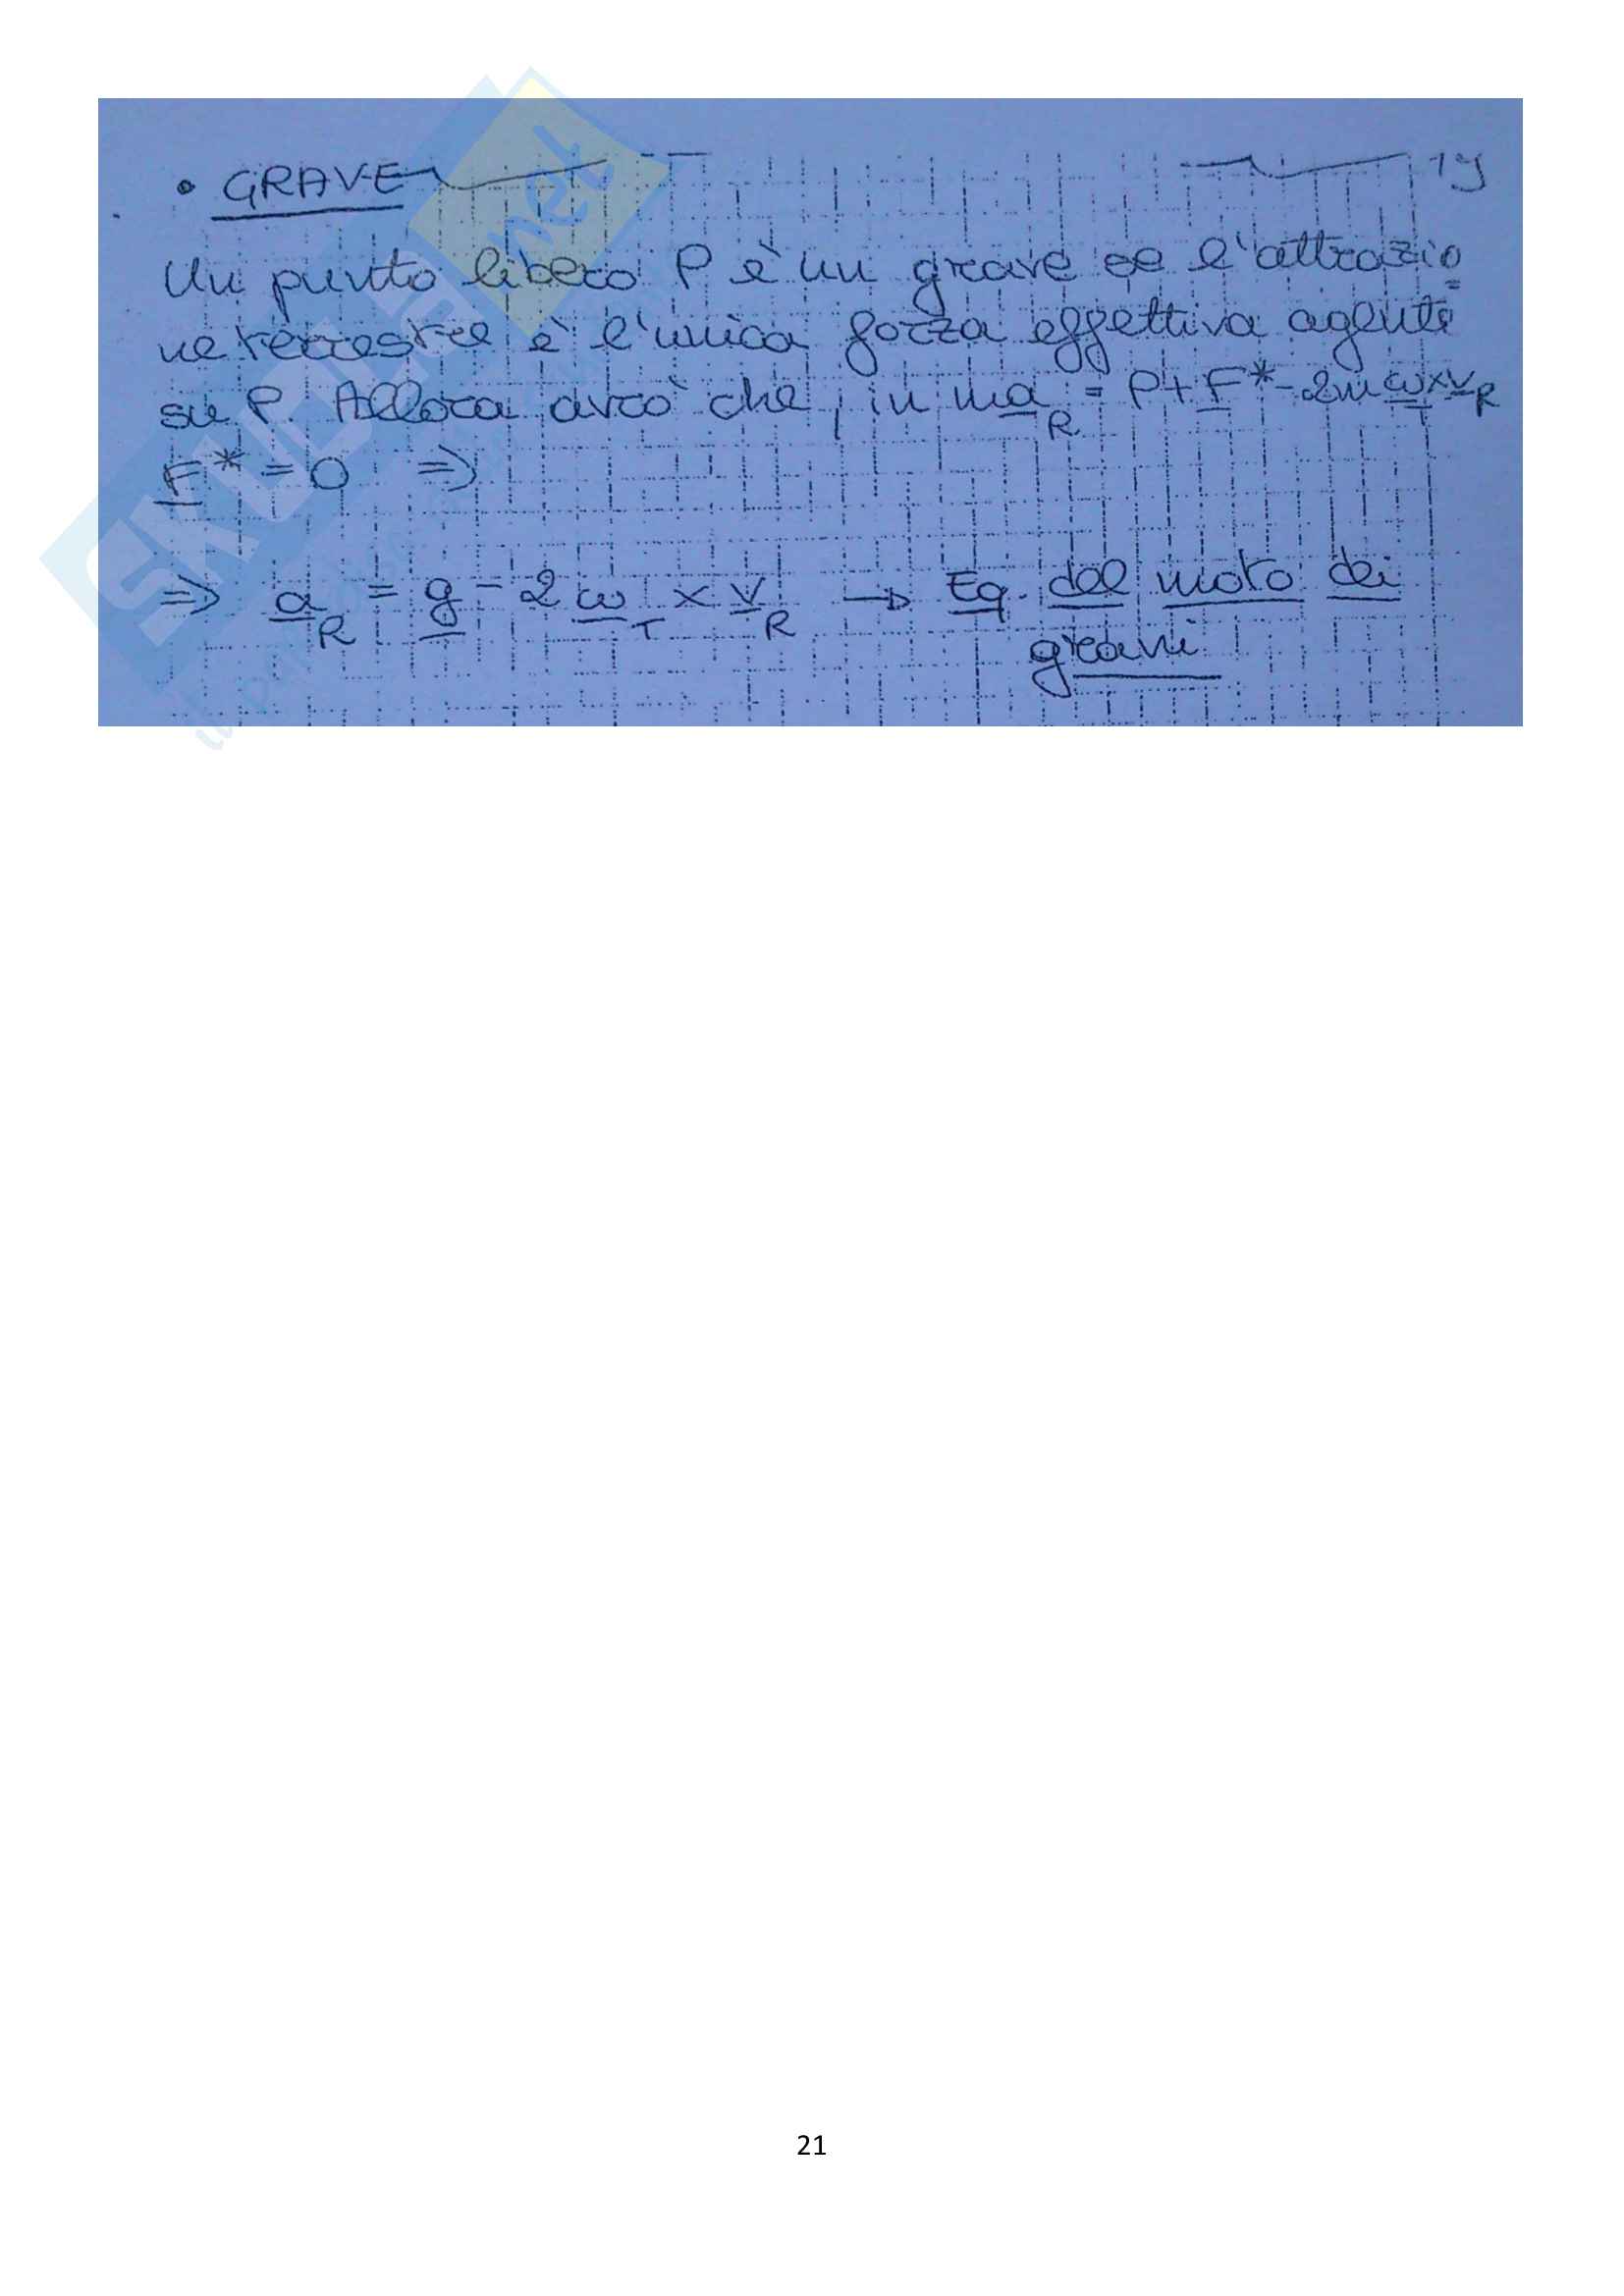 • GRAVE 19
Un punto libero P è un grave se l'attrazio
ne terrestre è l'unica forza effettiva agente
su P. Allora avrò che, in ma_R = P + F* - 2m ω_T × v_R
F* = 0 ⇒
⇒ a_R = g - 2 ω_T × v_R → Eq. del moto dei
gravi
SKUOLA.net
21